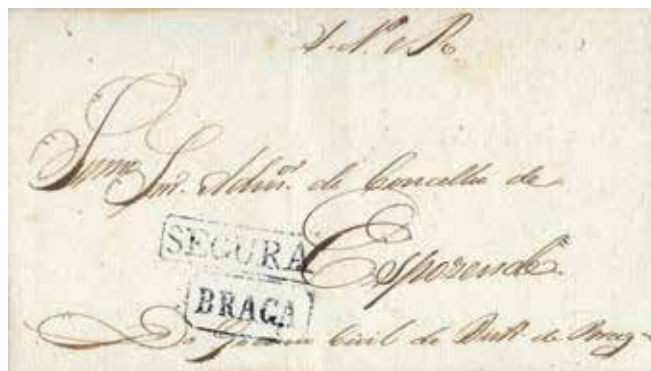 S. N. e R.
Illmo Snr. Admor. do Concelho de
SEGURA
Espozende.
BRAGA
Do Governo Civil do Distr. de Braga